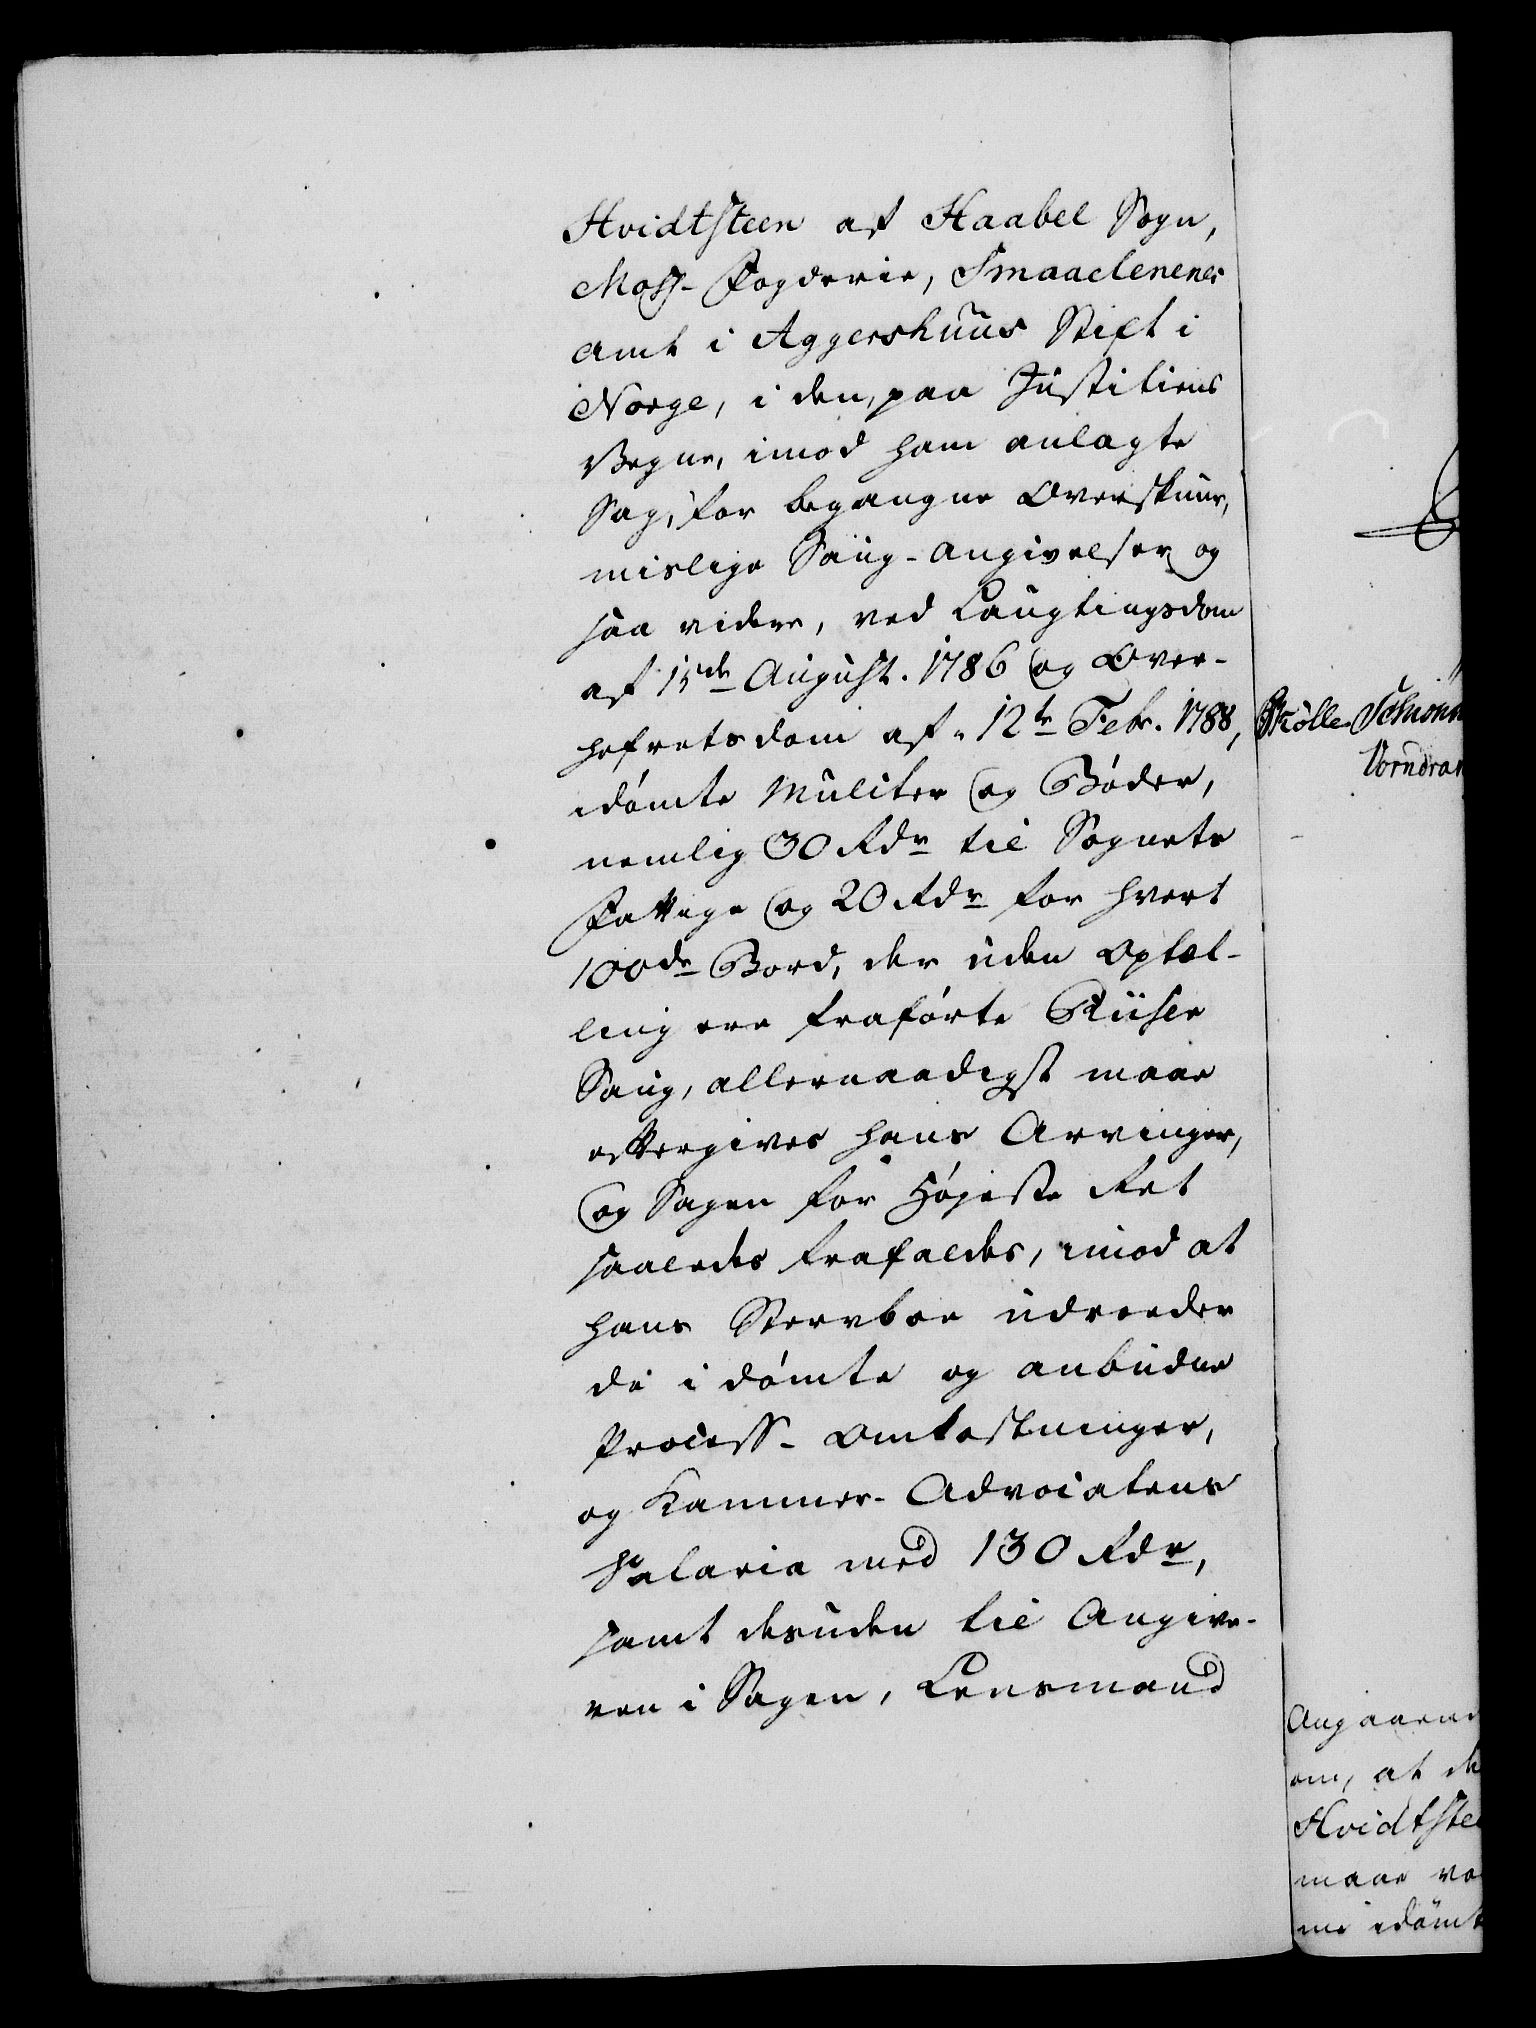 Hvidtsteen af Haabel Sogn,
Moss-Fogderie, Smaalenenes
Amt i Aggershuus Stift i
Norge, i den, paa Justitiens
Vegne, imod ham anlagte
Sag, for begangne Overskuur,
mislige Saug-Angivelser og
saa videre, ved Laugtingsdom
af 15de August. 1786 og Over-
hofretsdom af 12te Febr. 1788,
idømte Mulcter og Bøder,
nemlig 30 Rdr til Sognets
Fattige og 20 Rdr for hvert
100de Bord, der uden Optæl-
ling ere fraførte Riiser
Saug, allernaadigst maae
eftergives hans Arvinger,
og Sagen for Højeste Ret
saaledes frafaldes, imod at
hans Stervboe udreeder
de idømte og anbudne
Process-Omkostninger,
og Kammer-Advocatens
Salaria med 130 Rdr,
samt desuden til Angive-
ren i Sagen, Lensmand
Skølle
Vorndran
Angaaend
om, at de
Hvidtste
maae
idømt